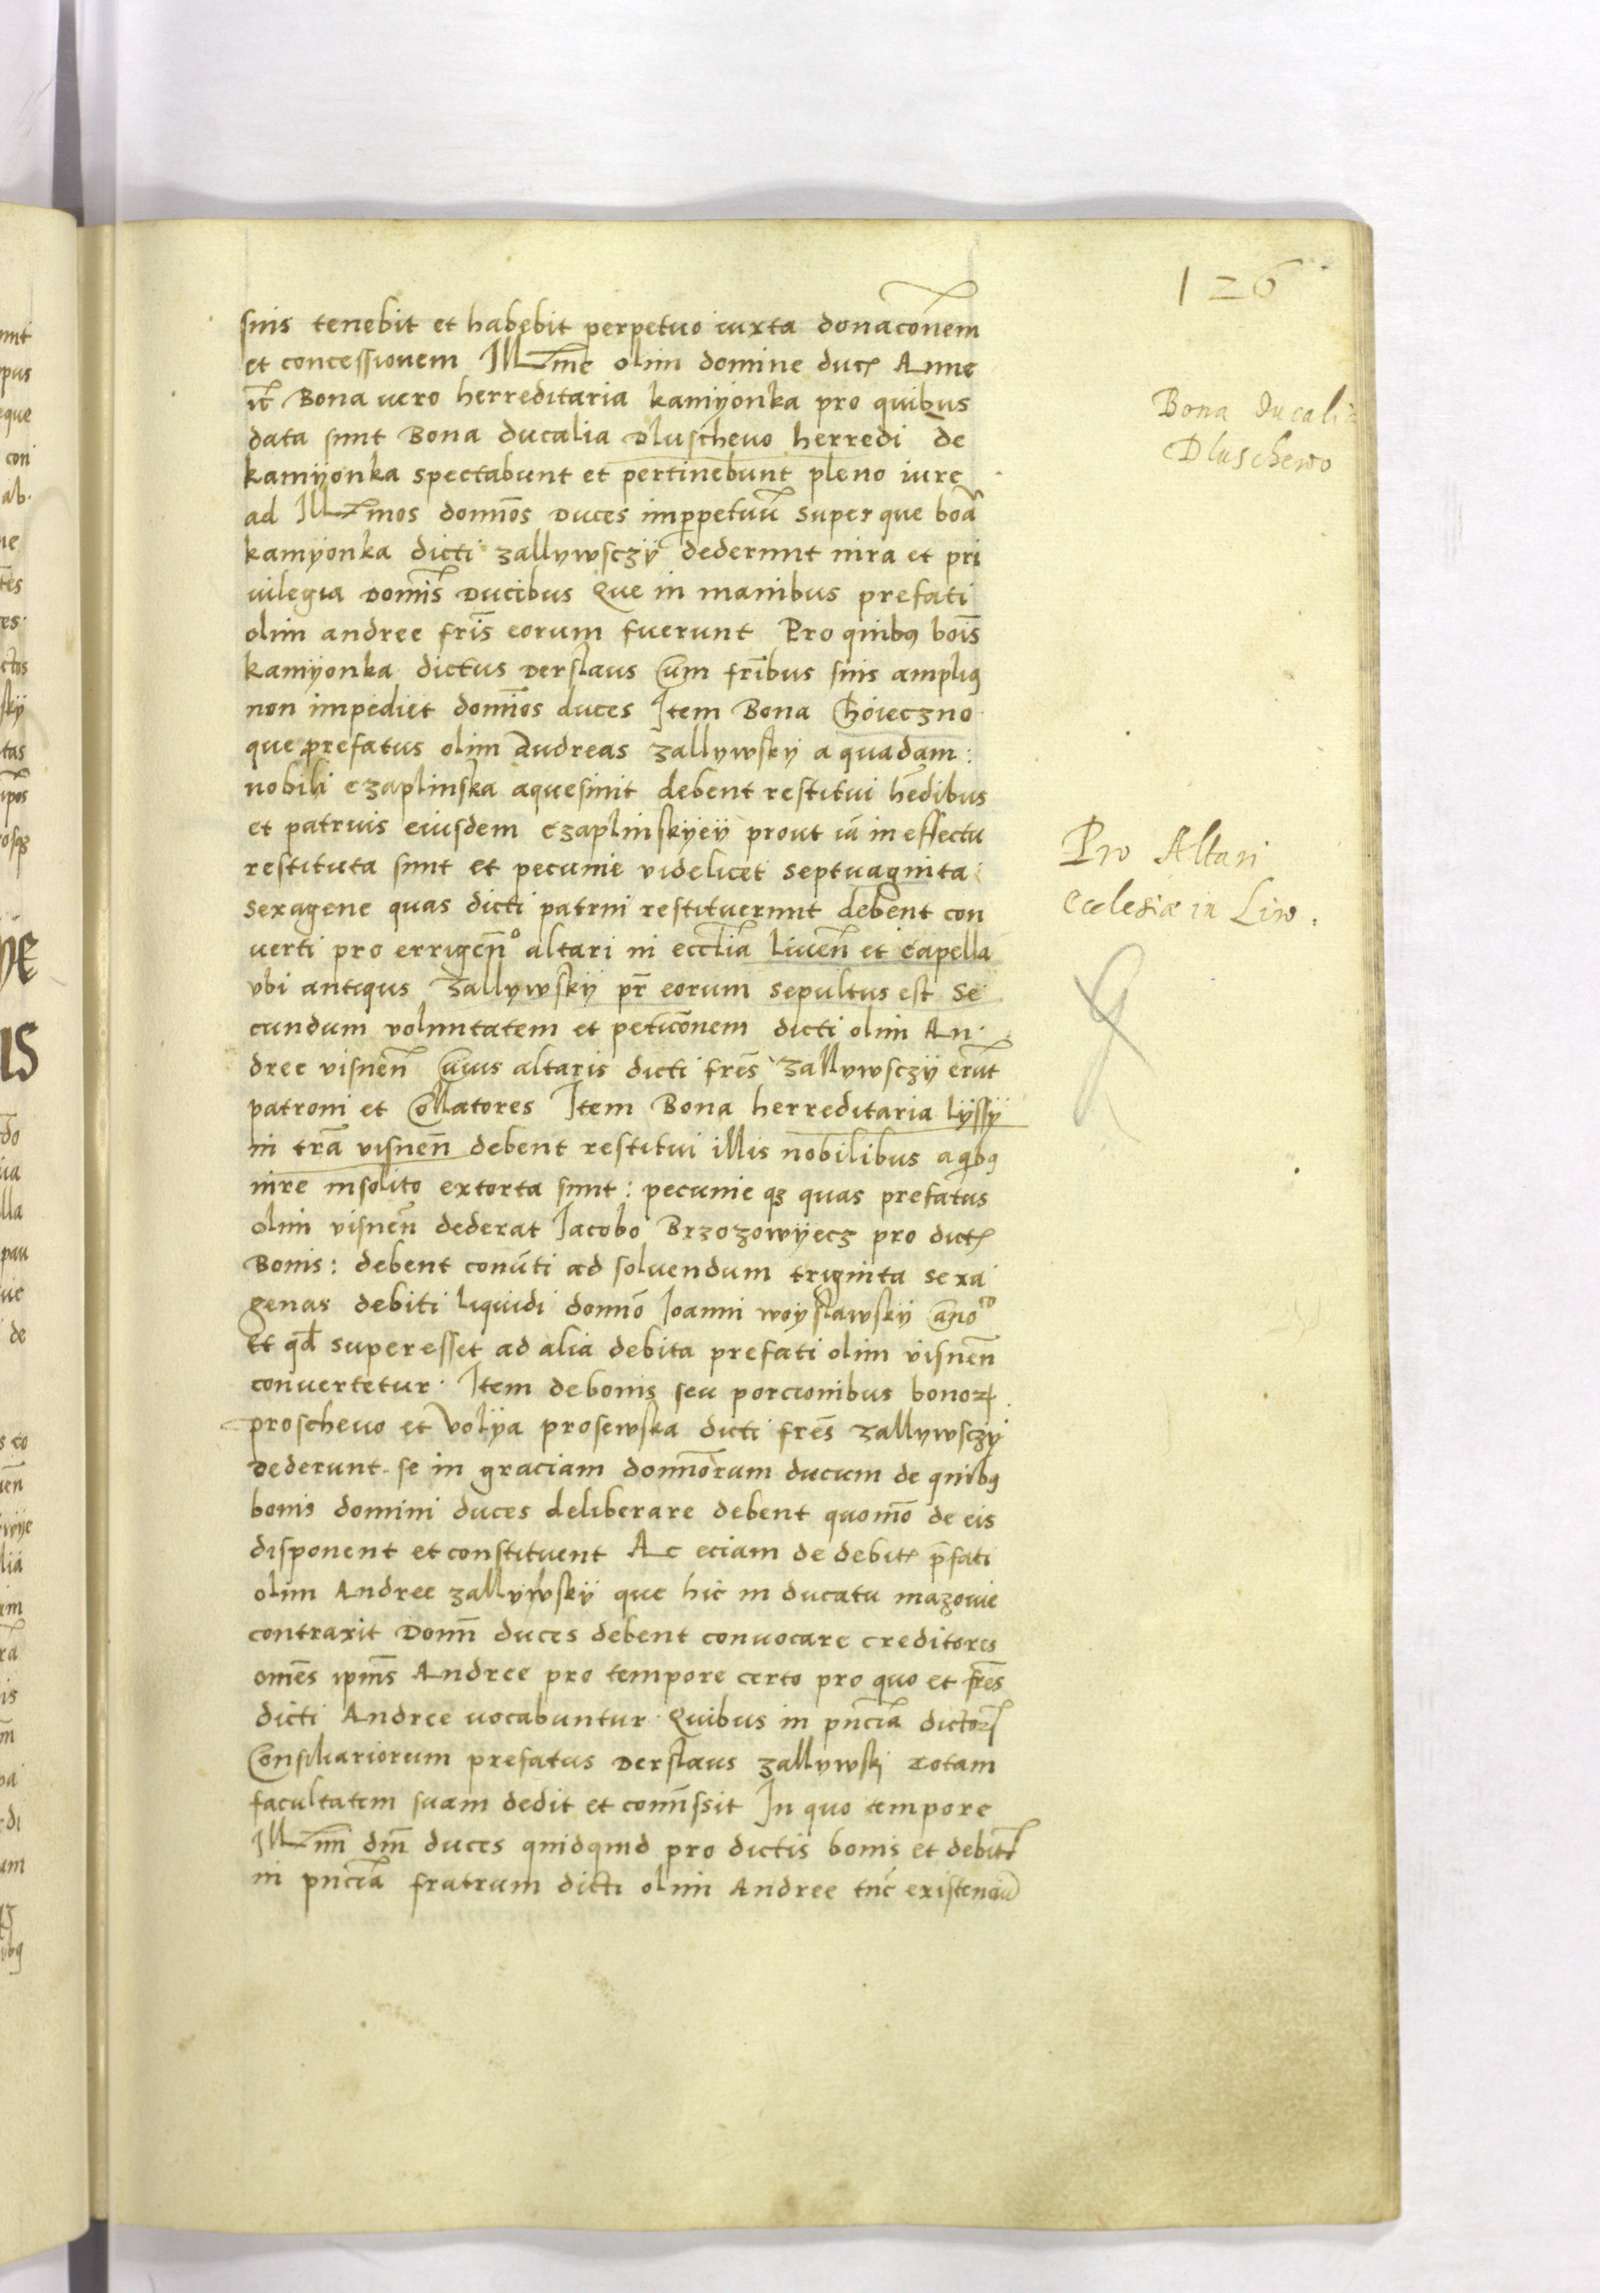 126
suis tenebit et habebit perpetuo iuxta donacōnem
et concessionem Illme olim domine ducꝭ Anne
It Bona uero herreditaria kamyonka pro quibus
data sunt Bona ducalia Dluscheuo herredi de
kamyonka spectabunt et pertinebunt pleno iure
ad Illmos domīos Duces imꝑpetuū super que boā
kamyonka dicti zallywsczÿ dederunt iura et pri
uilegia Domīs Ducibus Que in manibus prefati
olim andree frīs eorum fuerunt Pro quibꝫ boīs
kamyonka dictus Derslaus Cum frībus suis ampliꝫ
non impediet domīos duces Item Bona Choieczno
que prefatus olim Andreas zallywsky a quadam:
nobili Czaplinska aquesiuit debent restitui hēdibus
et patruis eiusdem Czaplinskyey prout iā in effectu
restituta sunt et pecunie videlicet septuaginta
sexagene quas dicti patrui restituerunt debent con
uerti pro errigēnº altari in ecclīa Liuēn et Capella
vbi antiqus Zallywskÿ pr̄ eorum sepultus est Se
cundum voluntatem et peticōnem dicti olim An
dree visnēn Cuius altaris dicti frēs Zallywsczÿ erūt
patroni et Collatores Item Bona herreditaria Lÿssÿ
in trā visnēn debent restitui illis nobilibus a qibꝫ
iure insolito extorta sunt: pecunie qꝫ quas prefatus
olim visnēn dederat Iacobo Brzozowyecz pro dictꝭ
Bonis: debent conūti ad soluendum triginta sexa
genas debiti liquidi domīo Ioanni woyslawskÿ Canōco
Et qd superesset ad alia debita prefati olim visnēn
conuertetur. Item de bonis seu porcionibus bonoꝝ
proscheuo et Volÿa prosewska dicti frēs zallywsczy
Dederunt se in graciam domīorum ducum de quibꝫ
bonis domini duces deliberare debent quomō de eis
disponent et constituent Ac eciam de debitꝭ p̄fati
olim Andree zallywskÿ que hic in ducatu mazouie
contraxit Domī duces debent conuocare creditores
omēs ipīus Andree pro tempore certo pro quo et frēs
dicti Andree uocabuntur Quibus in pn̄cia dictoꝝ
Consiliariorum prefatus Derslaus zallywskj totam
facultatem suam dedit et comīssit In quo tempore
Illmī dnī duces quidquid pro dictis bonis et debitꝭ
in pn̄cia fratrum dicti olim Andree tūc existenciū
Bona ducalia
Dluschewo
Pro Altari
Ecclesiæ in Liw.